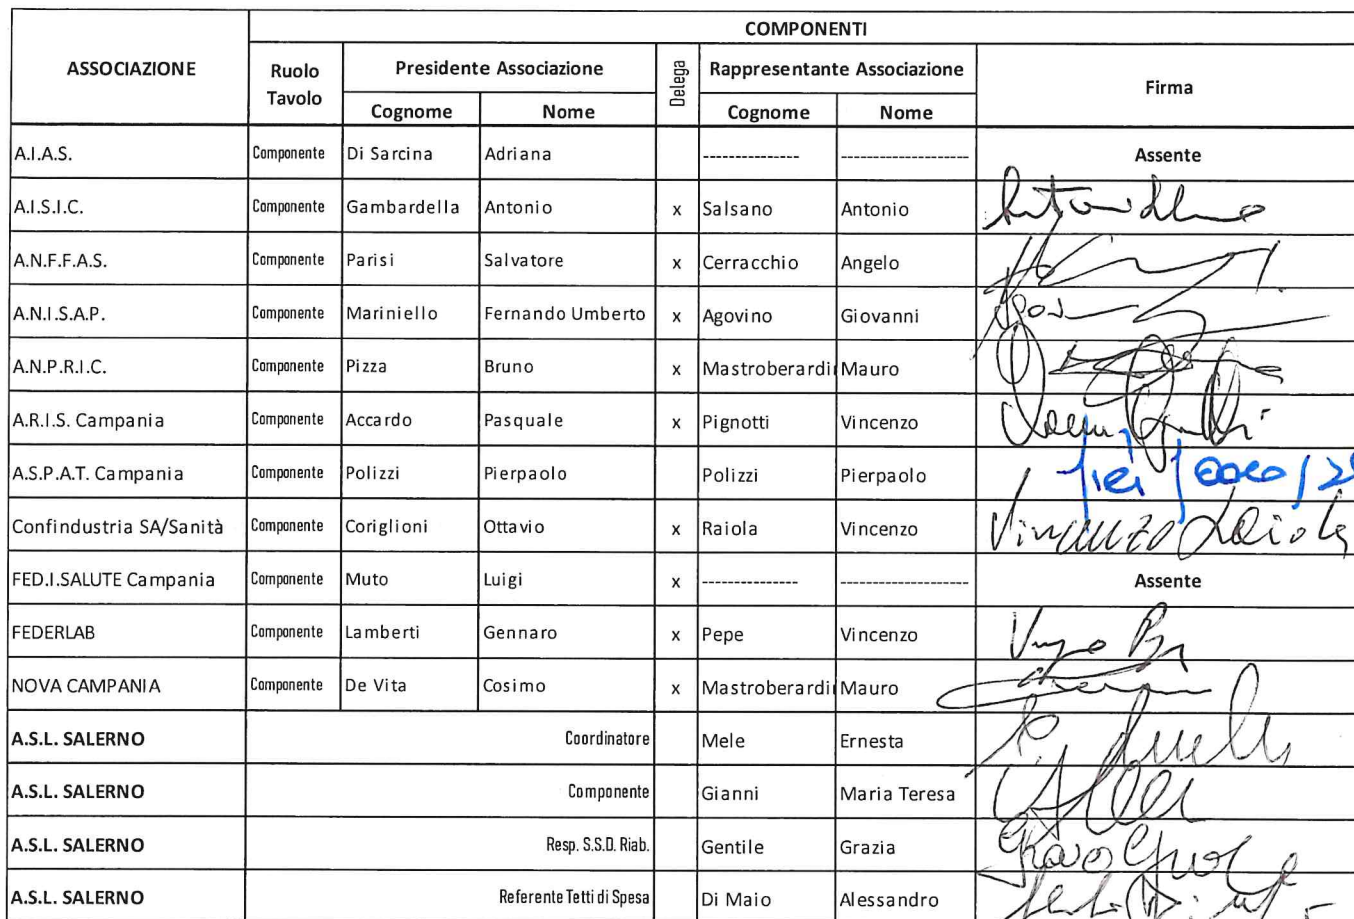 COMPONENTI
ASSOCIAZIONE Ruolo Tavolo Presidente Associazione Delega Rappresentante Associazione Firma
Cognome Nome Cognome Nome
A.I.A.S. Componente Di Sarcina Adriana --------------- -------------------- Assente
A.I.S.I.C. Componente Gambardella Antonio x Salsano Antonio
A.N.F.F.A.S. Componente Parisi Salvatore x Cerracchio Angelo
A.N.I.S.A.P. Componente Mariniello Fernando Umberto x Agovino Giovanni
A.N.P.R.I.C. Componente Pizza Bruno x Mastroberardi Mauro
A.R.I.S. Campania Componente Accardo Pasquale x Pignotti Vincenzo
A.S.P.A.T. Campania Componente Polizzi Pierpaolo Polizzi Pierpaolo
Confindustria SA/Sanità Componente Coriglioni Ottavio x Raiola Vincenzo Vincenzo Raiola
FED.I.SALUTE Campania Componente Muto Luigi x --------------- -------------------- Assente
FEDERLAB Componente Lamberti Gennaro x Pepe Vincenzo
NOVA CAMPANIA Componente De Vita Cosimo x Mastroberardi Mauro
A.S.L. SALERNO Coordinatore Mele Ernesta
A.S.L. SALERNO Componente Gianni Maria Teresa
A.S.L. SALERNO Resp. S.S.D. Riab. Gentile Grazia
A.S.L. SALERNO Referente Tetti di Spesa Di Maio Alessandro